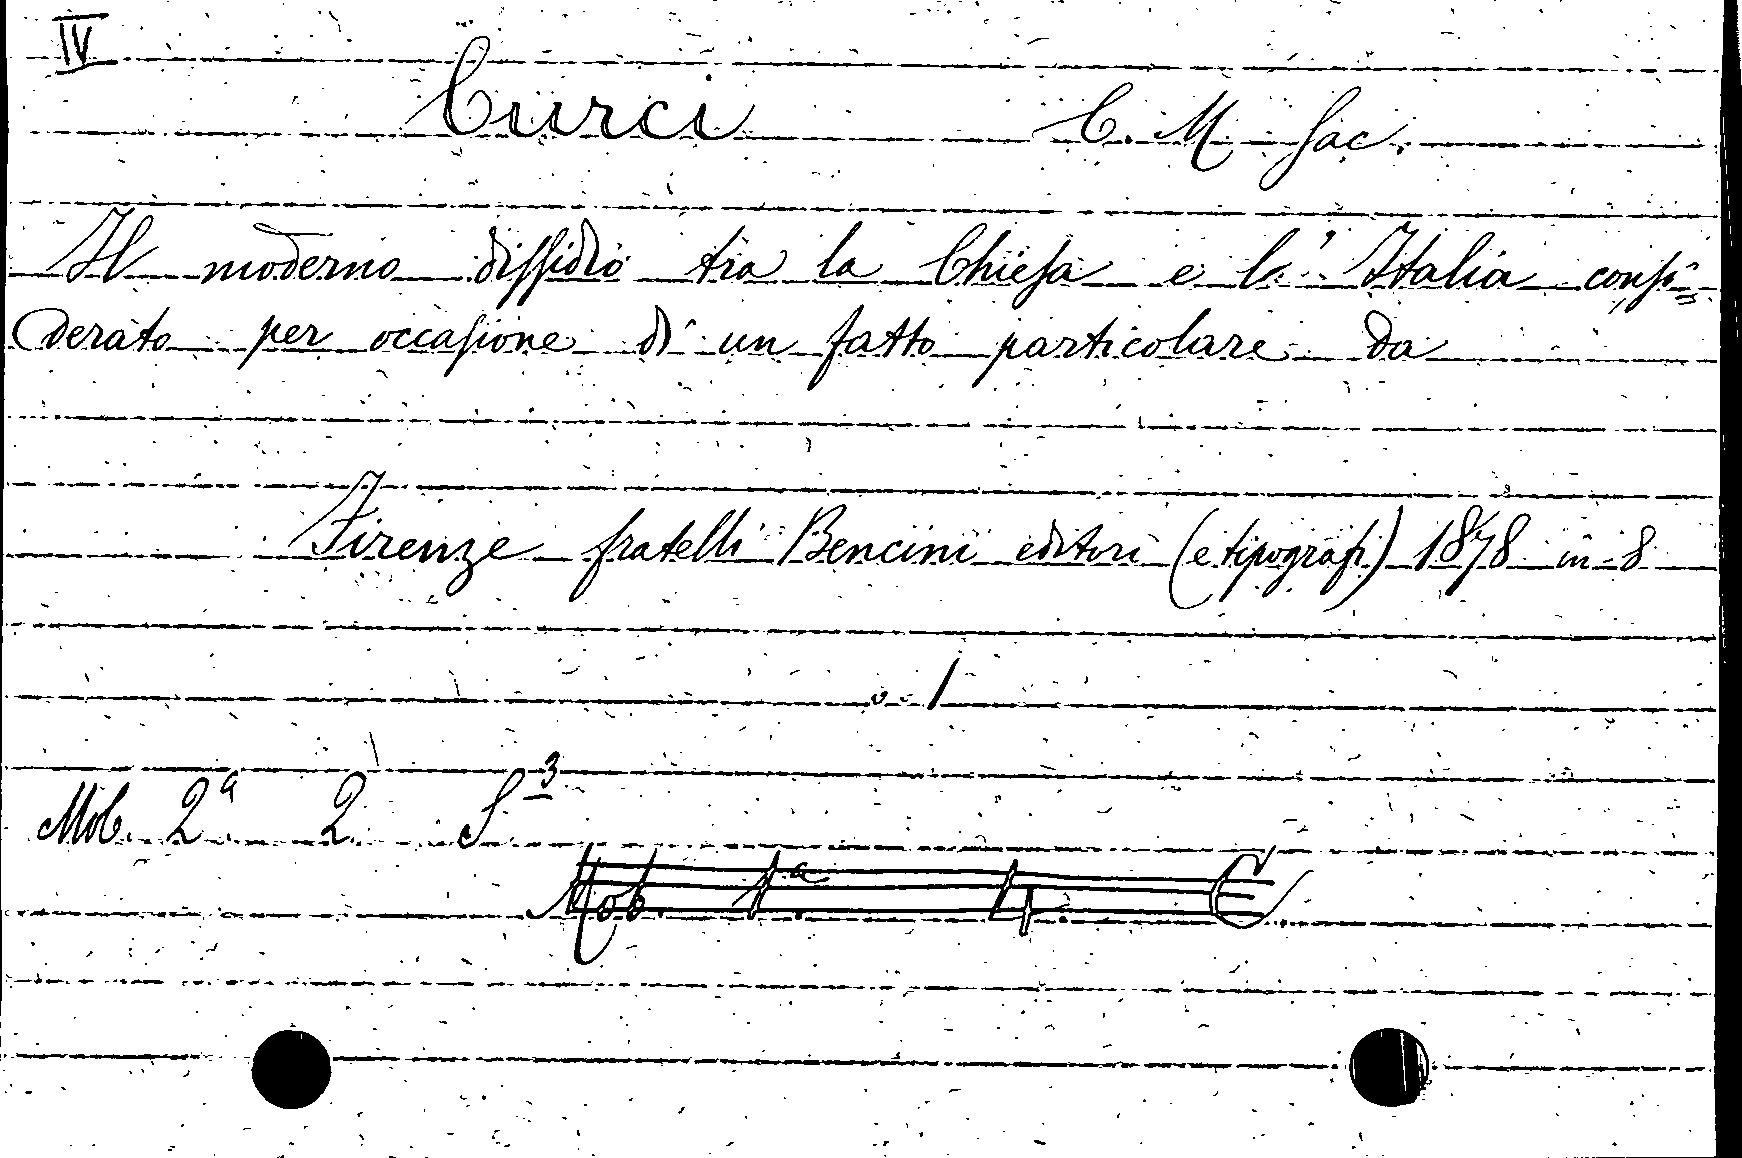 IV
Curci C. M. Sac.
Il moderno dissidio tra la Chiesa e l'Italia consi=
derato per occasione di un fatto particolare da
Firenze fratelli Bencini editori (e tipografi) 1878 in 8
v. 1
Mob. 2ª 2. S 3
Mob. 1ª 4. C